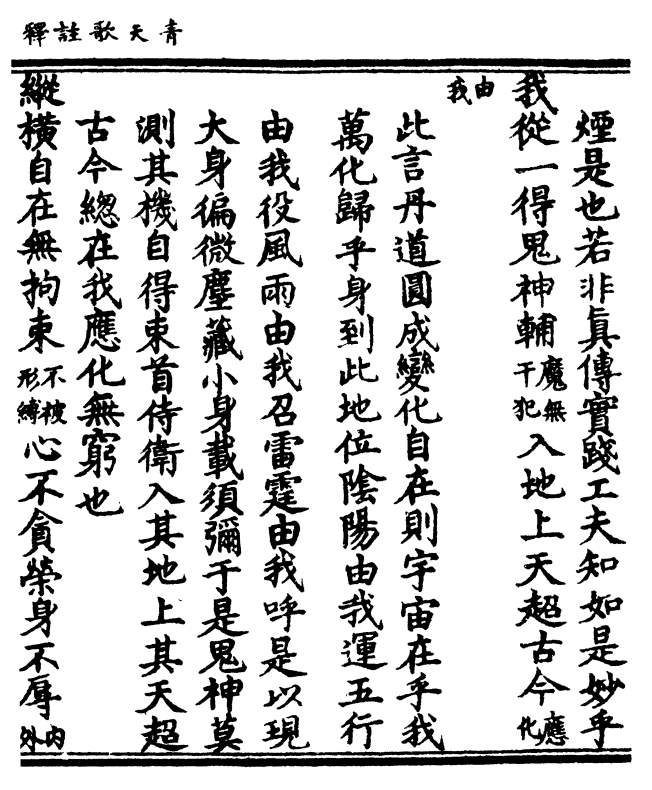 青天歌註釋
煙是也若非眞傳實踐工夫知如是妙乎
我從一得鬼神輔魔無干犯入地上天超古今應化
由我
此言丹道圓成變化自在則宇宙在乎我
萬化歸乎身到此地位陰陽由我運五行
由我役風雨由我召雷霆由我呼是以現
大身徧微塵藏小身載須彌于是鬼神莫
測其機自得束首侍衛入其地上其天超
古今總在我應化無窮也
縱橫自在無拘束不被形縛心不貪榮身不辱內外